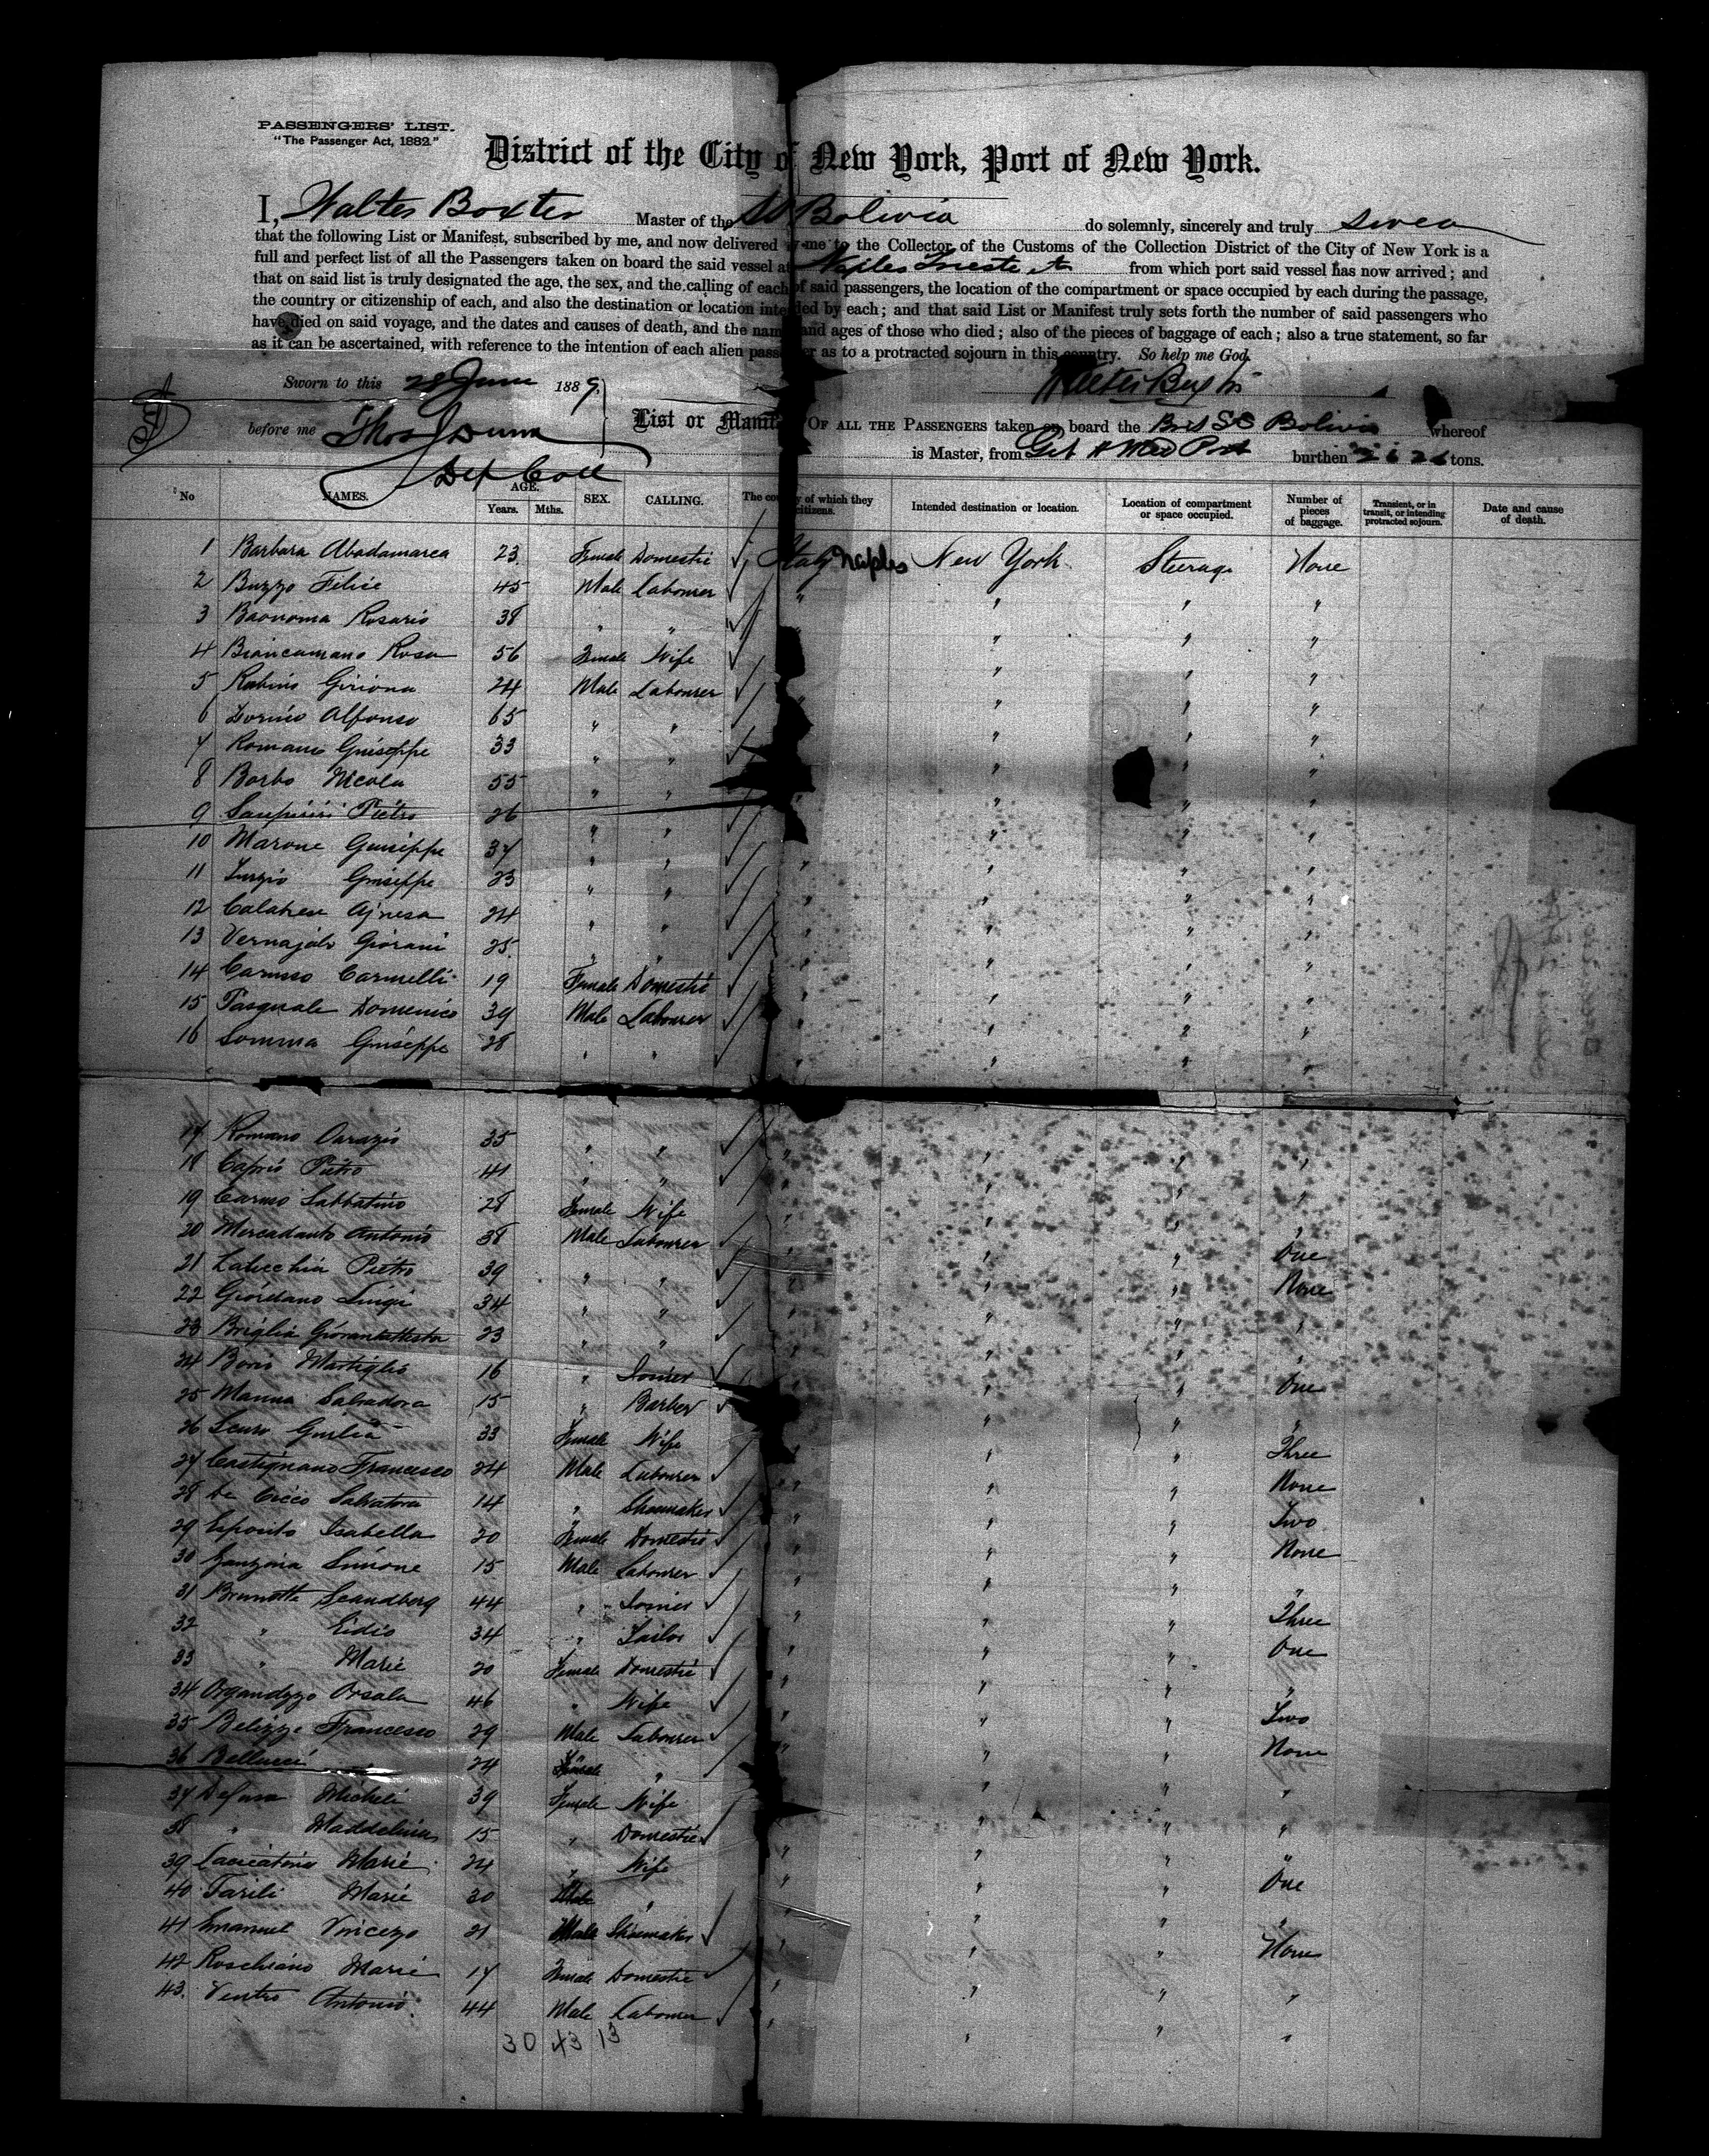 PASSENGERS' LIST.
"The Passenger Act, 1882."
District of the City of New York, Port of New York.
I, Walter Baxter Master of the SS Bolivia do solemnly, sincerely and truly swea
that the following List or Manifest, subscribed by me, and now delivered by me to the Collector of the Customs of the Collection District of the City of New York is a
full and perfect list of all the Passengers taken on board the said vessel at Naples Trieste from which port said vessel has now arrived; and
that on said list is truly designated the age, the sex, and the calling of each of said passengers, the location of the compartment or space occupied by each during the passage,
the country or citizenship of each, and also the destination or location intended by each; and that said List or Manifest truly sets forth the number of said passengers who
have died on said voyage, and the dates and causes of death, and the names and ages of those who died; also of the pieces of baggage of each; also a true statement, so far
as it can be ascertained, with reference to the intention of each alien passenger as to a protracted sojourn in this country. So help me God.
Sworn to this 28 June 1889. Walter Baxter
before me Thos J Dunn List or Manifest OF ALL THE PASSENGERS taken on board the SS Bolivia whereof
Dep Coll is Master, from Gib & Med Port burthen 2626 tons.
No NAMES. AGE. Years. Mths. SEX. CALLING. The country of which they citizens. Intended destination or location. Location of compartment or space occupied. Number of pieces of baggage. Transient, or in transit, or intending protracted sojourn. Date and cause of death.
1 Barbara Abadamarca 23 Female Domestic Italy Naples New York Steerage None
2 Buzzo Felice 45 Male Labourer " " " "
3 Baonoma Rosario 38 " " " " "
4 Biancamano Rosa 56 Female Wife " " "
5 Rabins Giriona 24 Male Labourer " " " "
6 Alfonso 65 " " " " "
7 Romano Guiseppe 33 " " " " "
8 Borbo Nicola 55 " " " " "
9 Pietro 26 " " " " "
10 Marone Guiseppe 37 " " " " "
11 Guiseppe 23 " " " " " "
12 Calabrese Ajnesa 24 " " " " " "
13 Giovani 25 " " " " " "
14 Caruso Carmelli 19 Female Domestic " " " "
15 Pasquale Domenico 39 Male Labourer " " " "
16 Somma Guiseppe 28 " " " " " "
17 Romano Oarazio 35 " " " " " "
18 Capris Pietro 41 " " " " " "
19 Caruso Sabbatino 28 Female Wife " " " "
20 Mercadanto Antonio 38 Male Labourer " " " One
21 Labecchia Pietro 39 " " " " " None
22 Giordano Luigi 34 " " " " " "
23 Briglia 23 " " " " " "
24 Boris Martiglio 16 " Joiner " " " One
25 Manna Salvadora 15 " Barber " " " "
26 Scuro Giulia 33 Female Wife " " " Three
27 Castignano Francesco 24 Male Labourer " " " None
28 De Cicco Salvatora 14 " Shoemaker " " " Two
29 Esposito Isabella 20 Female Domestic " " " None
30 Simone 15 Male Labourer " " " "
31 Brunette Scandberg 44 " Joiner " " " Three
32 " Eidio 34 " Tailor " " " One
33 " Marie 20 Female Domestic " " " "
34 Organdizzo Orsala 46 " Wife " " " Two
35 Belizze Francesco 29 Male Labourer " " " None
36 Bellucci 24 " " " " "
37 Micheli 39 Female Wife " " "
38 " Maddelina 15 " Domestic " " " "
39 Marie 24 " Wife " " " One
40 Tarili Marie 30 " " " " "
41 Emanuel Vincezo 21 Male Shoemaker " " " None
42 Roschiano Marie 17 Female Domestic " " " "
43. Ventro Antonio 44 Male Labourer " " " "
30 43 13